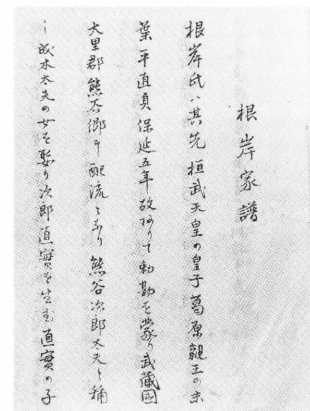 根岸家譜
根岸氏ハ其先桓武天皇の皇子葛原親王の末
葉平直貞保延五年故ありて勅勘を蒙り武蔵國
大里郡熊谷郷に配流となり熊谷次郎大夫と稱
し成木大夫の女を娶り次郎直實を生む直實の子